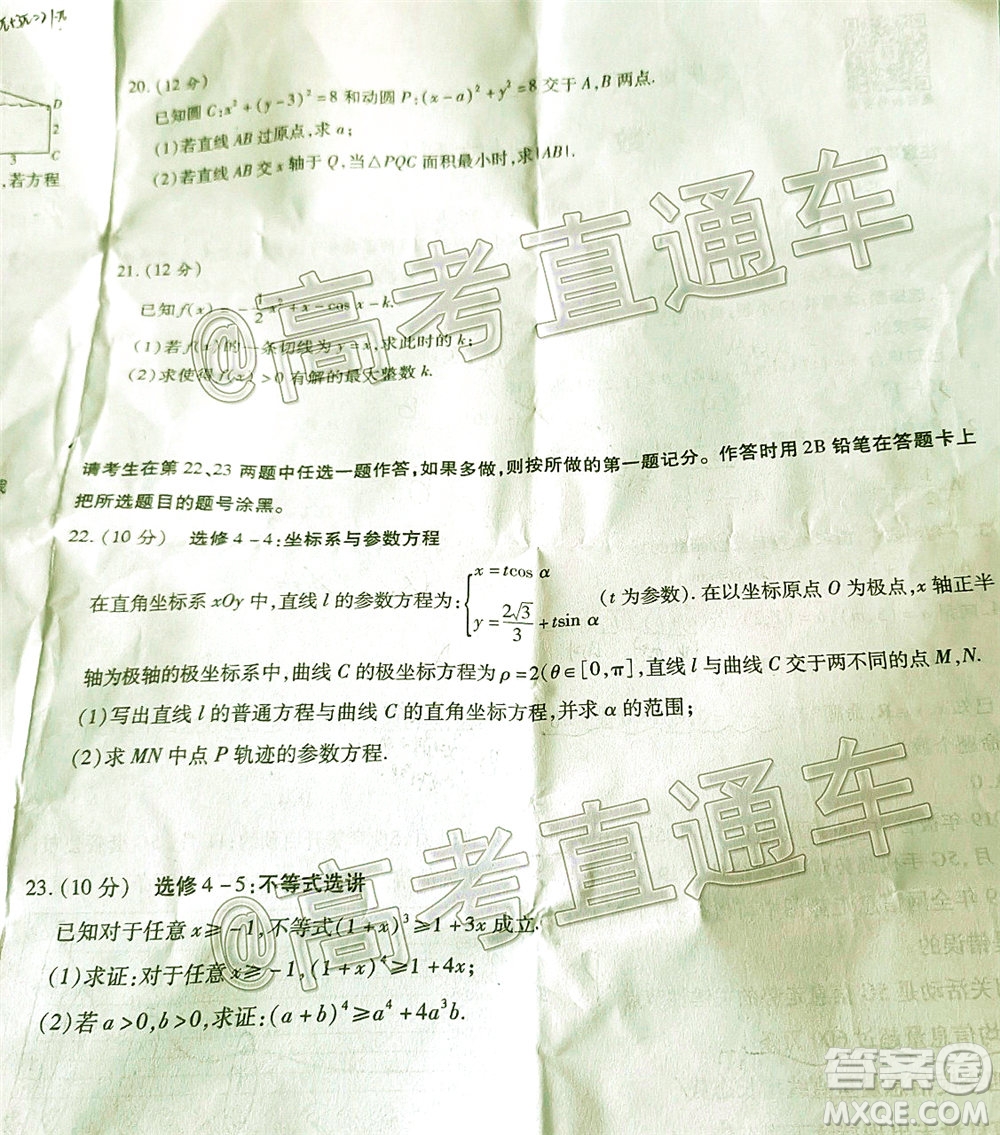 D
2
3
C
,若方程
20.(12分)
已知圆C:x²+(y-3)²=8和动圆P:(x-a)²+y²=8交于A,B两点.
(1)若直线AB过原点,求a;
(2)若直线AB交x轴于Q,当△PQC面积最小时,求|AB|.
21.(12分)
已知f(x)=-\frac{1}{2}x²+x-cos x-k.
(1)若f(x)的一条切线为y=x,求此时的k;
(2)求使得f(x)>0有解的最大整数k.
请考生在第22、23两题中任选一题作答,如果多做,则按所做的第一题记分。作答时用2B铅笔在答题卡上
把所选题目的题号涂黑。
22.(10分) 选修4-4:坐标系与参数方程
在直角坐标系xOy中,直线l的参数方程为:{x=tcos α, y=\frac{2\sqrt{3}}{3}+tsin α (t为参数).在以坐标原点O为极点,x轴正半
轴为极轴的极坐标系中,曲线C的极坐标方程为ρ=2(θ∈[0,π],直线l与曲线C交于两不同的点M,N.
(1)写出直线l的普通方程与曲线C的直角坐标方程,并求α的范围;
(2)求MN中点P轨迹的参数方程.
23.(10分) 选修4-5:不等式选讲
已知对于任意x≥-1,不等式(1+x)³≥1+3x成立.
(1)求证:对于任意x≥-1,(1+x)⁴≥1+4x;
(2)若a>0,b>0,求证:(a+b)⁴≥a⁴+4a³b.
@高考直通车
@高考直通车
答案圈
MXQE.COM